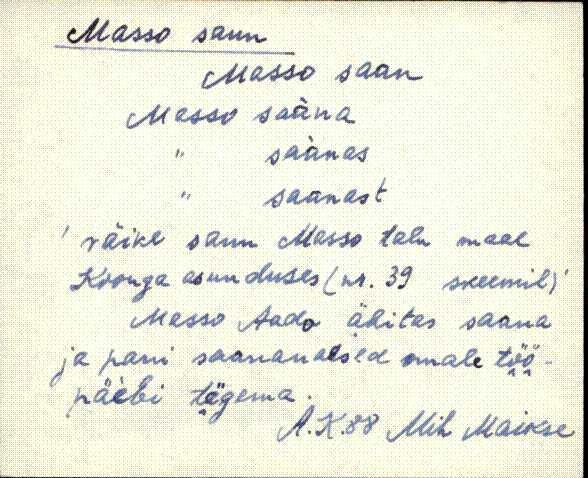 Masso saun
Masso saan
Masso saàna
" saànas
" saanast
' väike saun Masso talu maal
Koonga asunduses (nr. 39 skeemil)'
Masso Aado äkitas saana
ja pani saananaesed omale töö-
päèbi tegema.
A.K.88 Mih